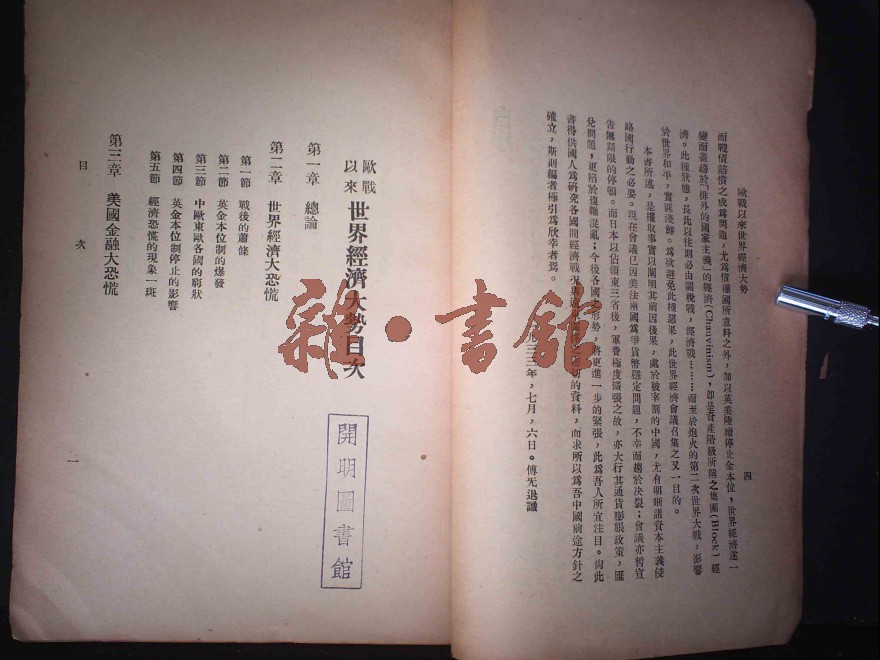 歐戰以來世界經濟大勢
四
而戰債賠償之成為問題，尤為債權國所意料之外，加以英美陸續停止金本位，世界經濟遂一
變而盡趨於「排外的國家主義」的經濟(Chauvinism)，卽是資產階級所稱之集團(Block)經
濟。此種狀態，長此以往則必由關稅戰，經濟戰………而至於炮火的第二次世界大戰，影響
於世界和平，實匪淺鮮。為欲避免此種惡果，此世界經濟會議召集之又一目的。
本書所述，是權取事實以闡明其前因後果，處於被宰割的中國，尤有明晰諸資本主義侵
略國行動之必要。現在會議已因美法兩國為爭貨幣穩定問題，不幸而趨於決裂；會議亦暫宣
告無期限的停頓。而日本以佔領東三省後，軍費極度擴張之故，亦大行其通貨膨脹政策，匯
兌問題，更陷於複雜混亂；今後各國形勢，將更進一步的緊張，此為吾人所宜注目。倘此
書得供國人為研究各國間經濟戰況的資料，而求所以為吾中國前途方針之
確立，斯則編者極引為欣幸者焉。
三三年，七月，六日。傅无退識
歐戰以來 世界經濟大勢目次
第一章 總論
第二章 世界經濟大恐慌
第一節 戰後的蕭條
第二節 英金本位制的爆發
第三節 中歐東歐各國的窮狀
第四節 英金本位制停止的影響
第五節 經濟恐慌的現象一斑
第三章 美國金融大恐慌
目次
一
開明圖書館
雜·書館